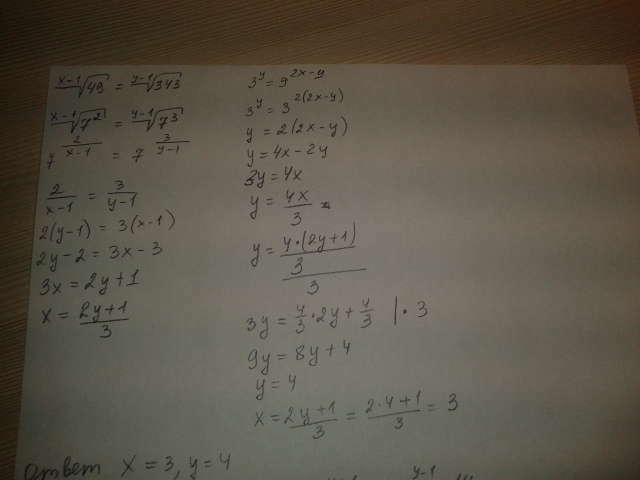 x-1√49 = y-1√343
x-1√7² = y-1√7³
7^(2/(x-1)) = 7^(3/(y-1))
2/(x-1) = 3/(y-1)
2(y-1) = 3(x-1)
2y-2 = 3x-3
3x = 2y+1
x = (2y+1)/3
3^y = 9^(2x-y)
3^y = 3^(2(2x-y))
y = 2(2x-y)
y = 4x-2y
3y = 4x
y = 4x/3
y = (4·(2y+1)/3)/3
3y = 4/3·2y + 4/3 |·3
9y = 8y+4
y = 4
x = (2y+1)/3 = (2·4+1)/3 = 3
ответ x = 3, y = 4